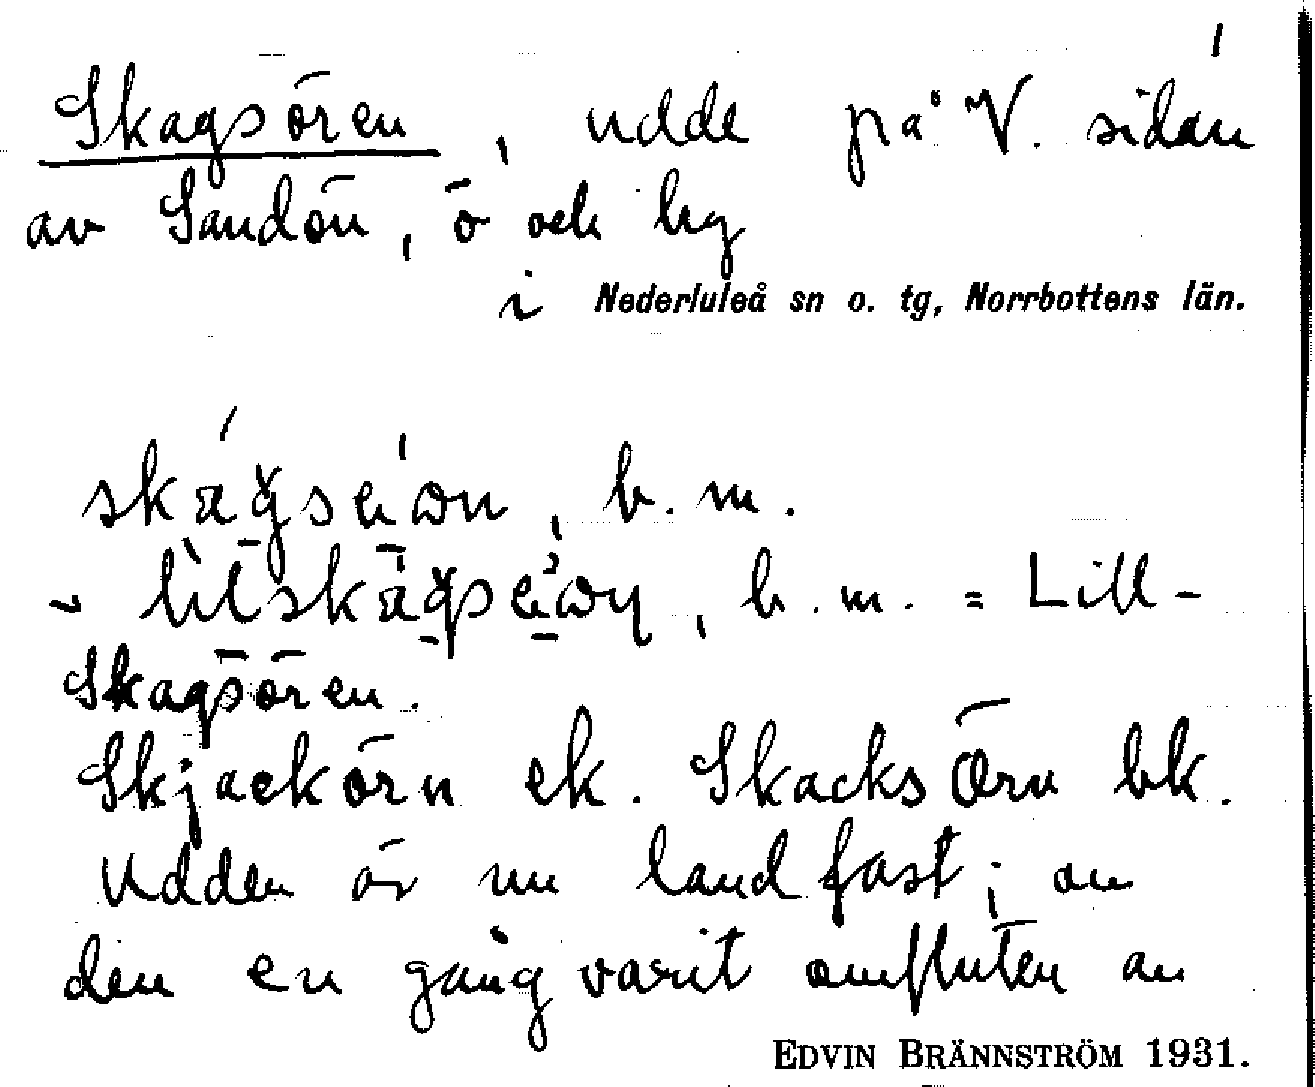 1
Skagsören, udde på V. sidan
av Sandön, ö och hg
i Nederluleå sn o. tg, Norrbottens län.
b. m.
b. m. = Lill-
Skagsören.
Skjackörn ek. Skacks Örn bk.
Udden är nu landfast; om
den en gång varit omfluten av
EDVIN BRÄNNSTRÖM 1931.